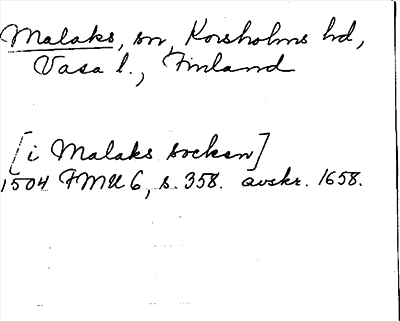 Malaks, sn, Korsholms hd,
Vasa l., Finland
[i Malaks socken]
1504 FMU 6, s. 358. avskr. 1658.